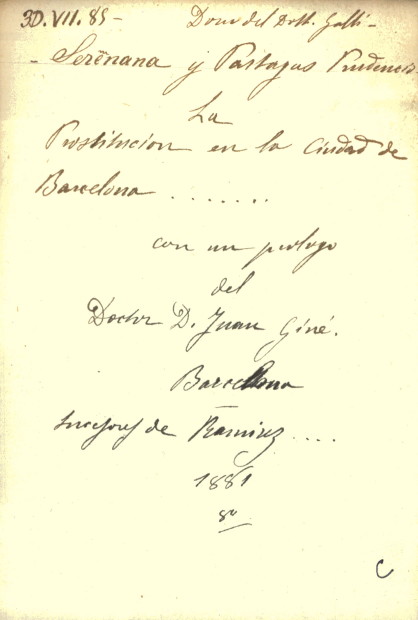 30.VII.85 - Dono del Dott. Galli -
- Sereñana y Partagas Prudencio
La
Prostitucion en la Ciudad de
Barcelona .......
con un prologo
del
Doctor D. Juan Giné.
Barcelona
Sucesores de Ramirez ....
1881
8º
C